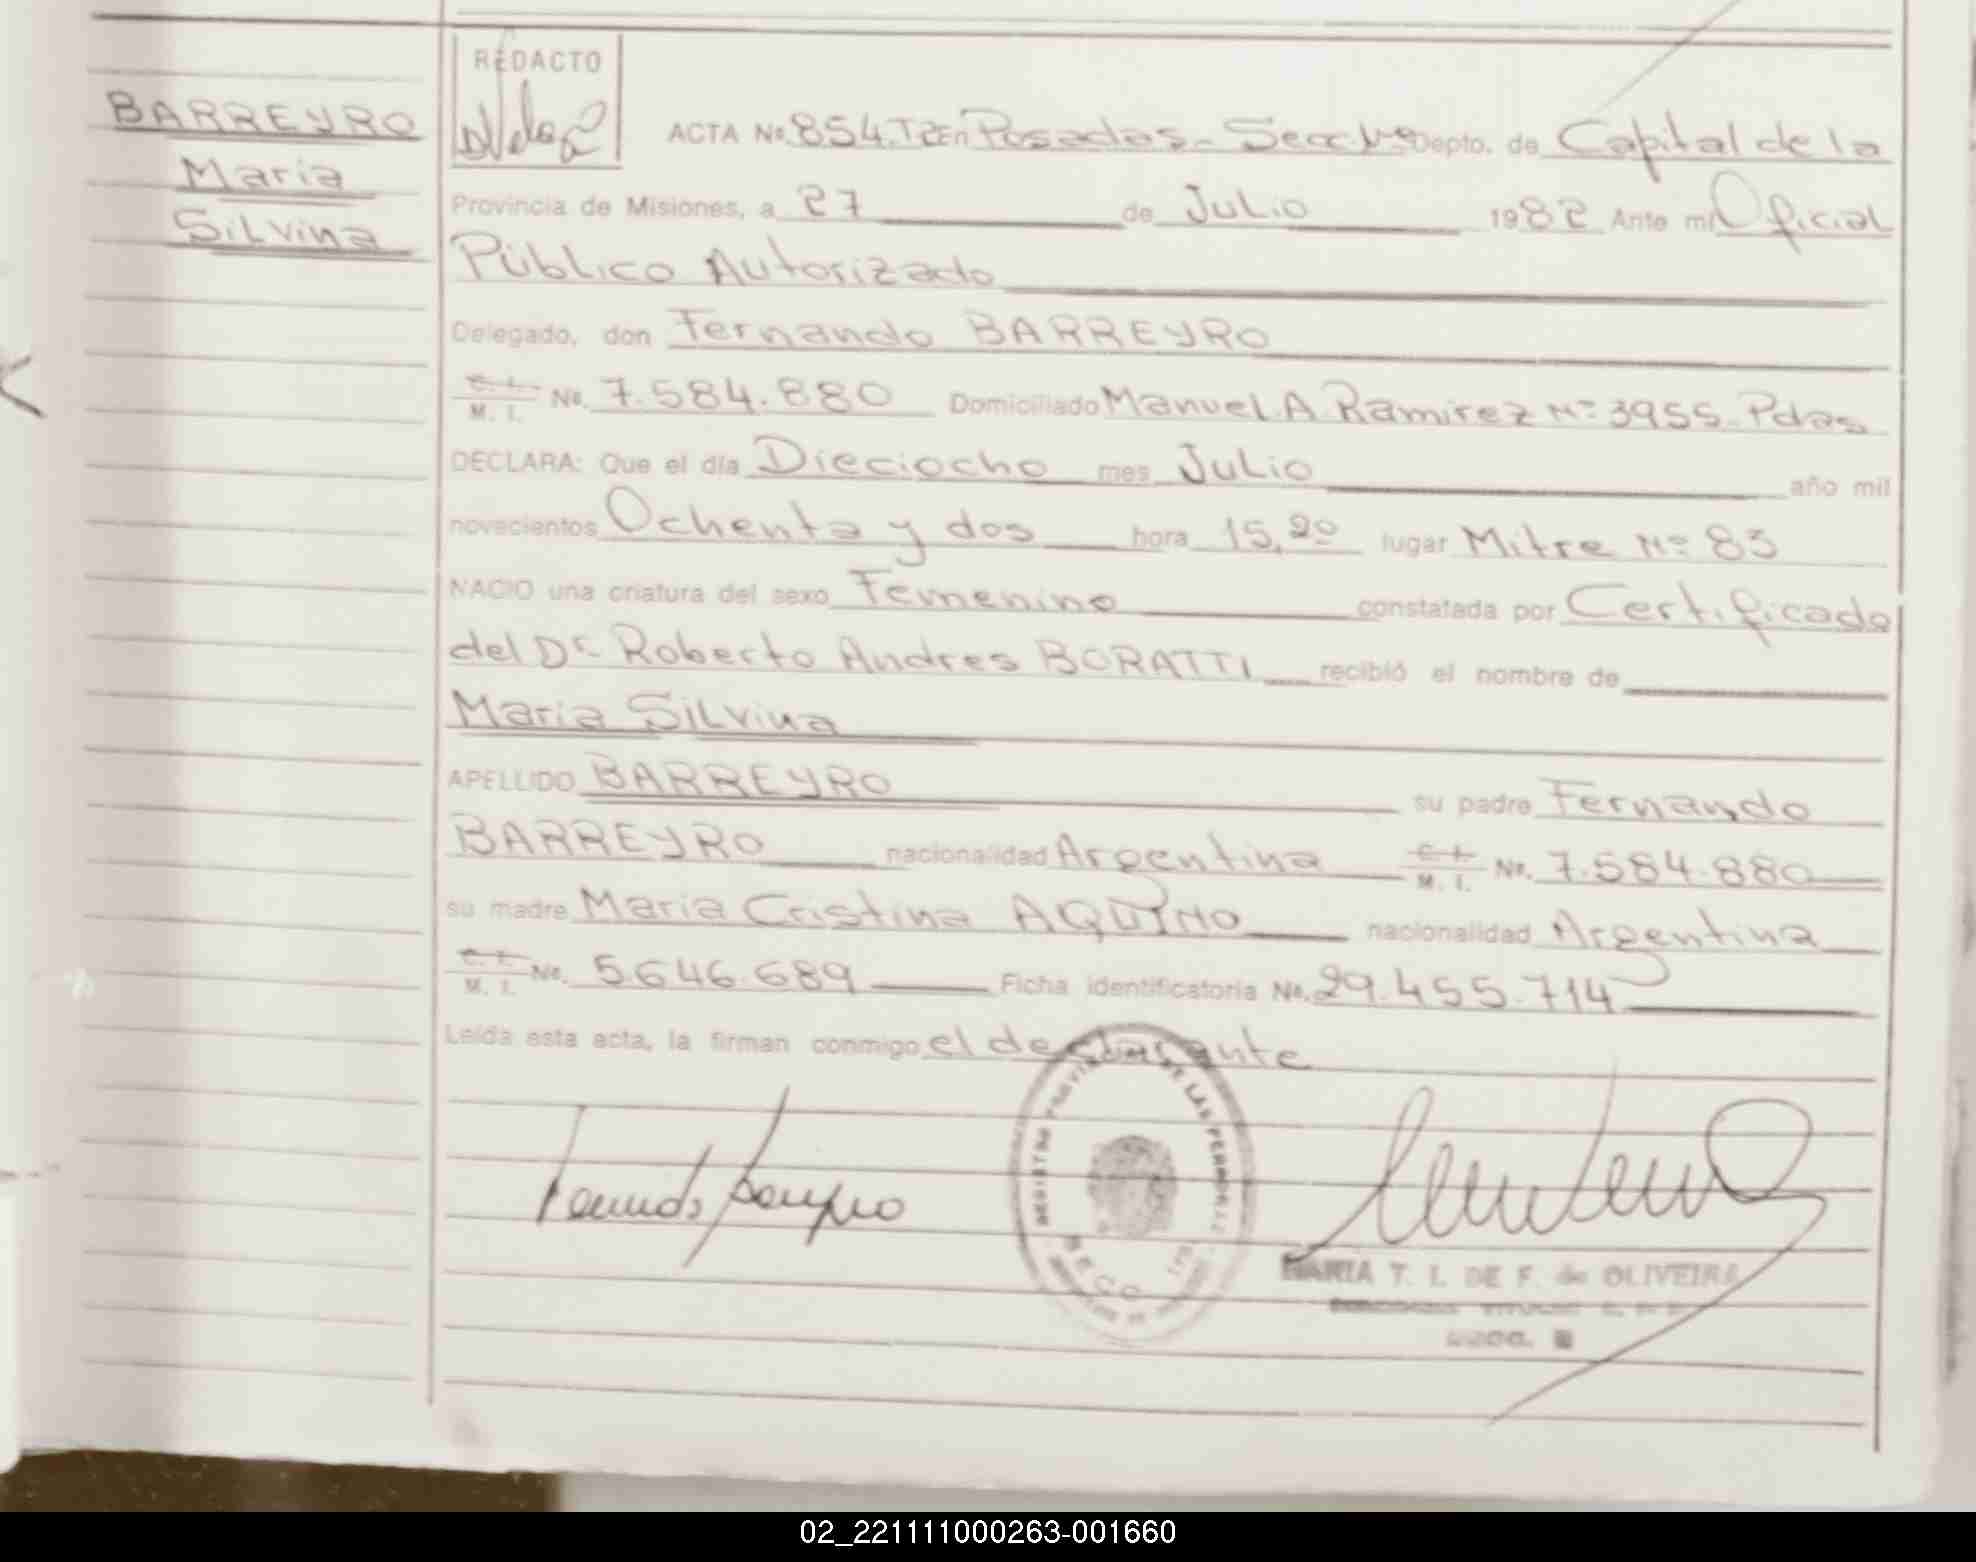 BARREYRO
Maria
Silvina
REDACTO
ACTA No. 854. T2 En Posadas - Secc Depto. de Capital de la
Provincia de Misiones, a 27 de Julio 1982 Ante mi Oficial
Público Autorizado
Delegado, don Fernando BARREYRO
C. I. M. I. No. 7.584.880 Domiciliado Manuel A. Ramirez Nº 3955 - Pdas
DECLARA: Que el día Dieciocho mes Julio año mil
novecientos Ochenta y dos hora 15,20 lugar Mitre Nº 83
NACIO una criatura del sexo Femenino constatada por Certificado
del Dr. Roberto Andres BORATTI recibió el nombre de
Maria Silvina
APELLIDO BARREYRO su padre Fernando
BARREYRO nacionalidad Argentina C. I. M. I. No. 7.584.880
su madre Maria Cristina AQUINO nacionalidad Argentina
C. I. M. I. No. 5.646.689 Ficha identificatoria No. 29.455.714
Leída esta acta, la firman conmigo el declarante
REGISTRO PROVINCIAL DE LAS PERSONAS
MARIA T. I. DE F. de OLIVEIRA
02_221111000263-001660